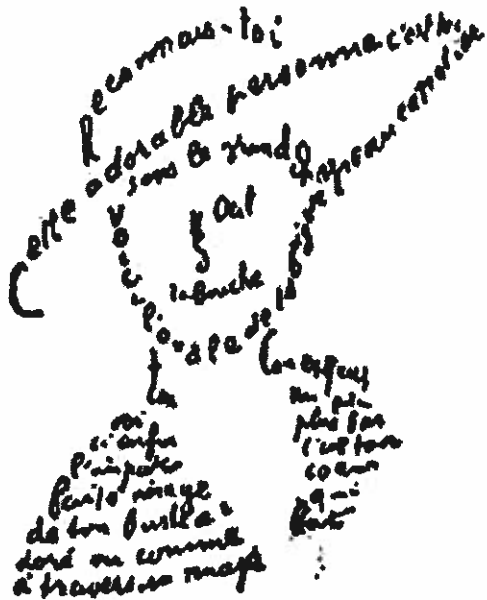 Reconnais-toi
Cette adorable personne c'est toi
sous le grand chapeau canotier
Oeil
Nez
la bouche
Voici l'ovale de ta figure
ton
Cou exquis
Voi
ci enfin
l'impar
faite image
de ton buste a
doré vu comme
à travers un nuage
un peu
plus bas
c'est ton
coeur
qui
bat